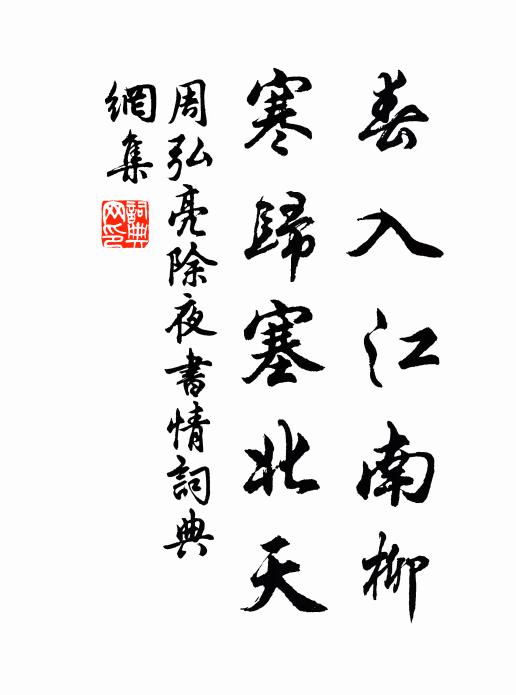 春入江南柳
寒歸塞北天
周弘亮除夜書情詞典
網集
詞典
网印